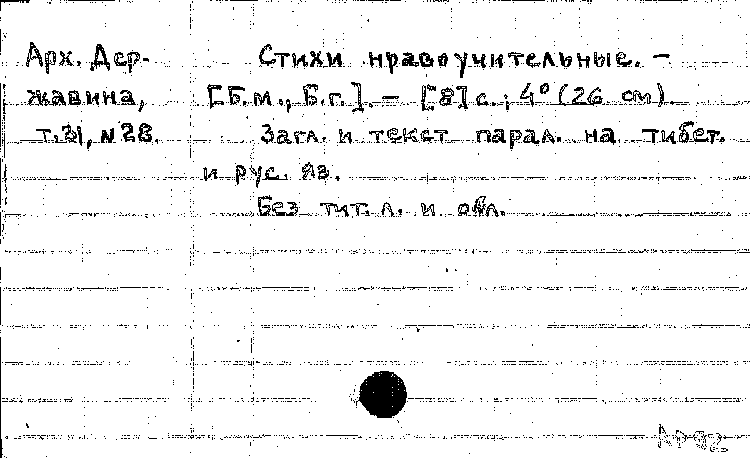 Арх. Дер-
жавина,
т.31, №28.
Стихи нравоучительные. –
[Б.м., Б.г.]. – [8] с.; 4° (26 см)
Загл. и текст парал. на тибет.
и рус. яз.
Без тит. л. и обл.